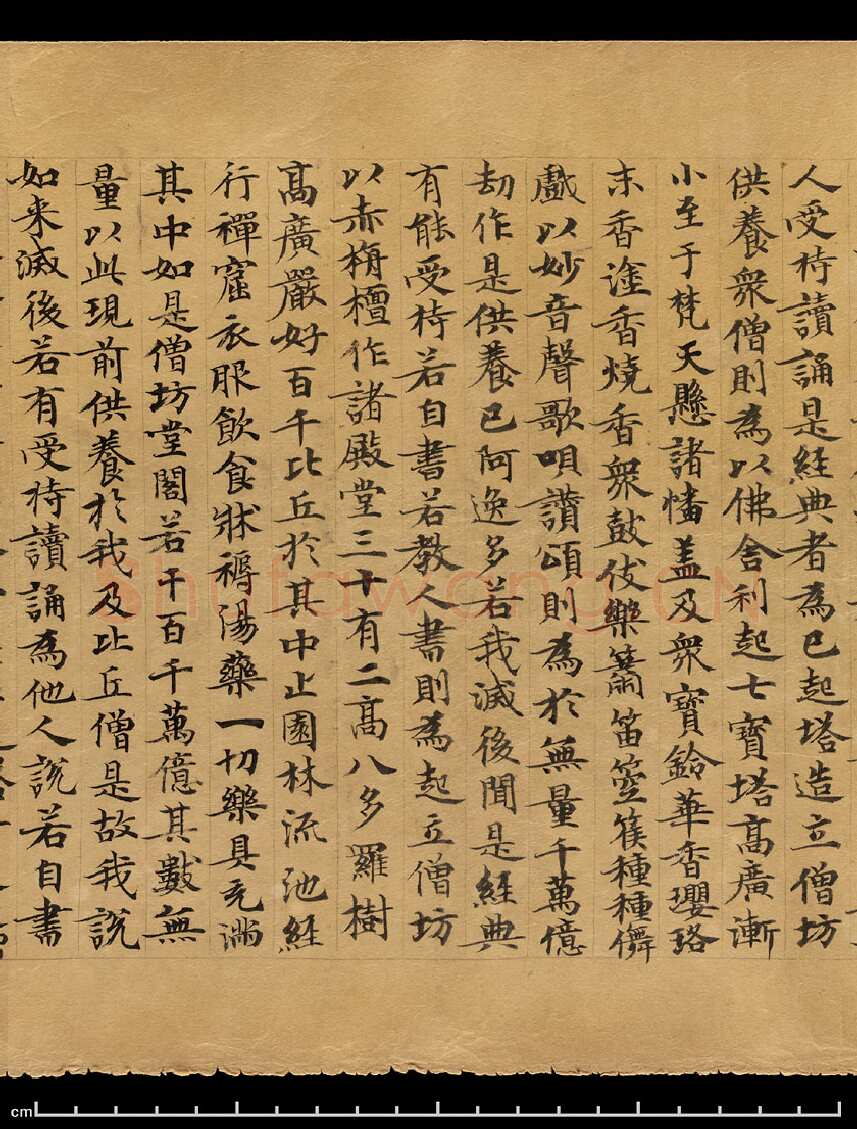 人受持讀誦是經典者為已起塔造立僧坊
供養眾僧則為以佛舍利起七寶塔高廣漸
小至于梵天懸諸幡蓋及眾寶鈴華香瓔珞
末香塗香燒香眾鼓伎樂簫笛箜篌種種儛
戲以妙音聲歌唄讚頌則為於無量千萬億
劫作是供養已阿逸多若我滅後聞是經典
有能受持若自書若教人書則為起立僧坊
以赤栴檀作諸殿堂三十有二高八多羅樹
高廣嚴好百千比丘於其中止園林流池經
行禪窟衣服飲食牀褥湯藥一切樂具充滿
其中如是僧坊堂閣若干百千萬億其數無
量以此現前供養於我及比丘僧是故我說
如来滅後若有受持讀誦為他人說若自書
Shufawang.CN
cm